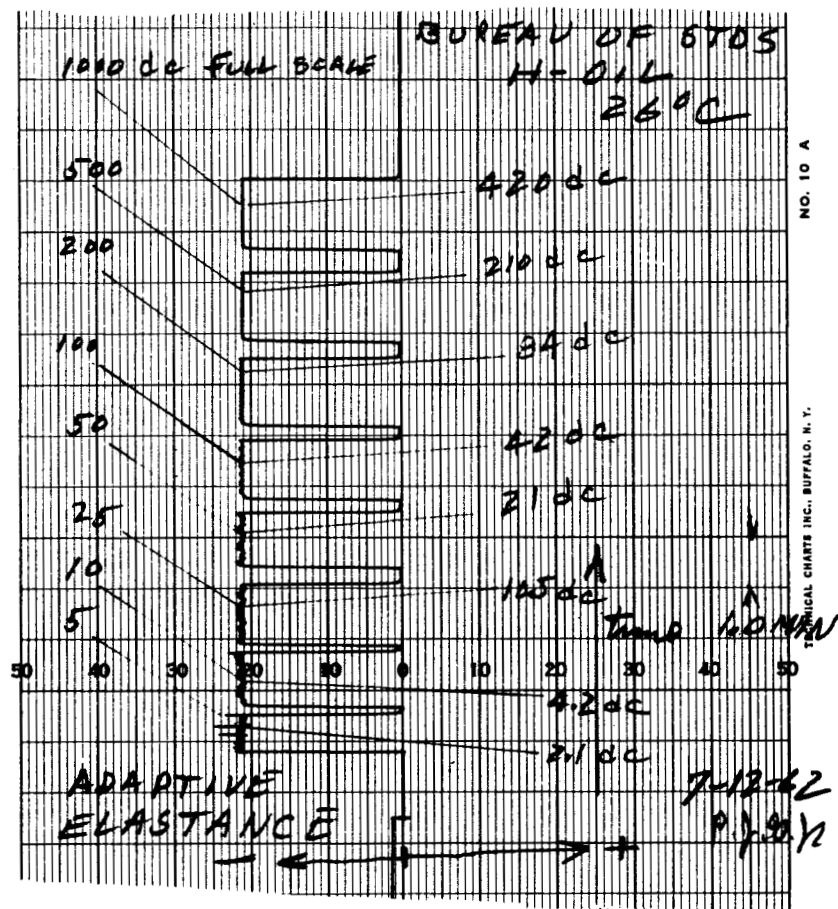 BUREAU OF STDS
H-OIL
26°C
1000 dc FULL SCALE
500
200
100
50
25
10
5
420 dc
210 dc
84 dc
42 dc
21 dc
10.5 dc
4.2 dc
2.1 dc
Time 1.0 MIN
50 40 30 20 10 0 10 20 30 40 50
ADAPTIVE
ELASTANCE
7-12-62
NO. 10 A
TECHNICAL CHARTS INC., BUFFALO, N. Y.
− +